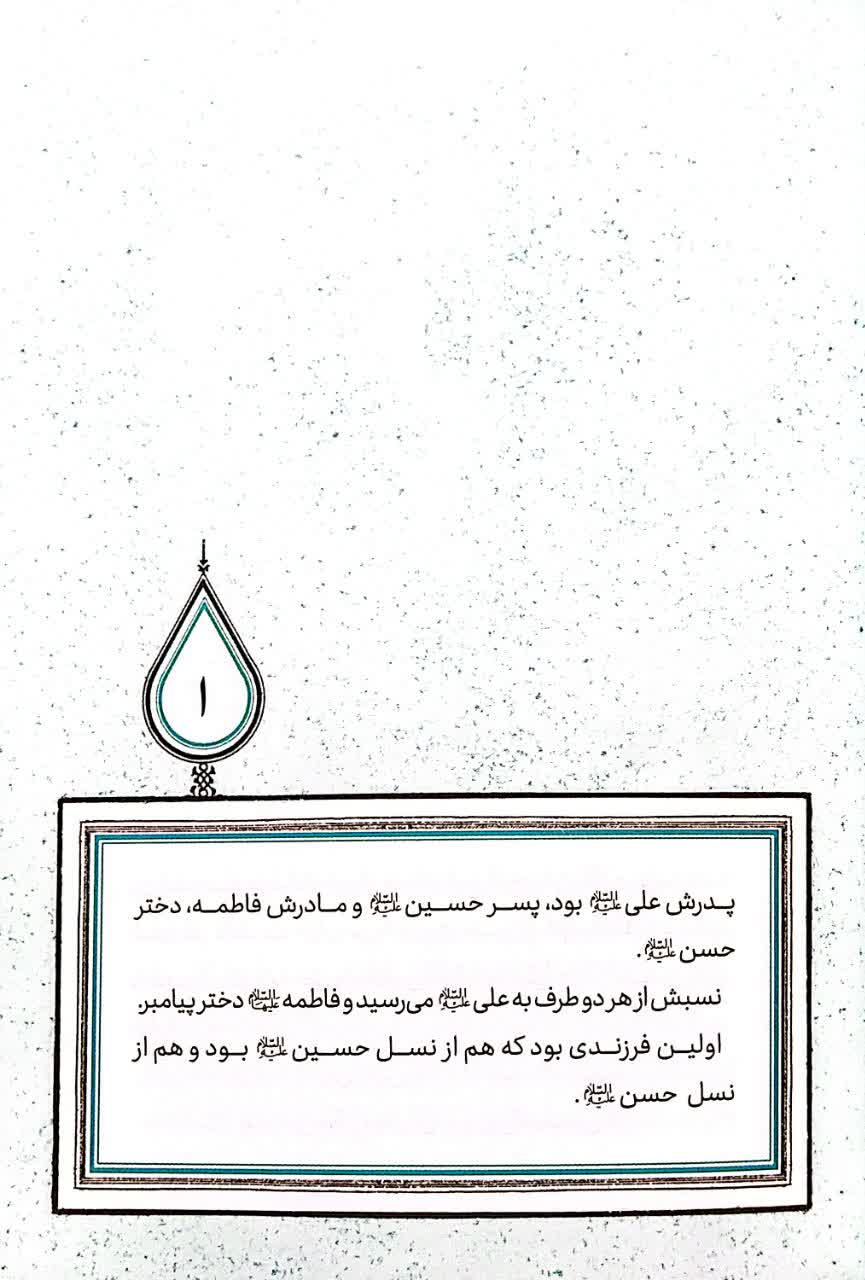 ۱
پدرش علی علیه‌السلام بود، پسر حسین علیه‌السلام و مادرش فاطمه، دختر
حسن علیه‌السلام.
نسبش از هر دو طرف به علی علیه‌السلام می‌رسید و فاطمه علیهاالسلام دختر پیامبر.
اولین فرزندی بود که هم از نسل حسین علیه‌السلام بود و هم از
نسل حسن علیه‌السلام.